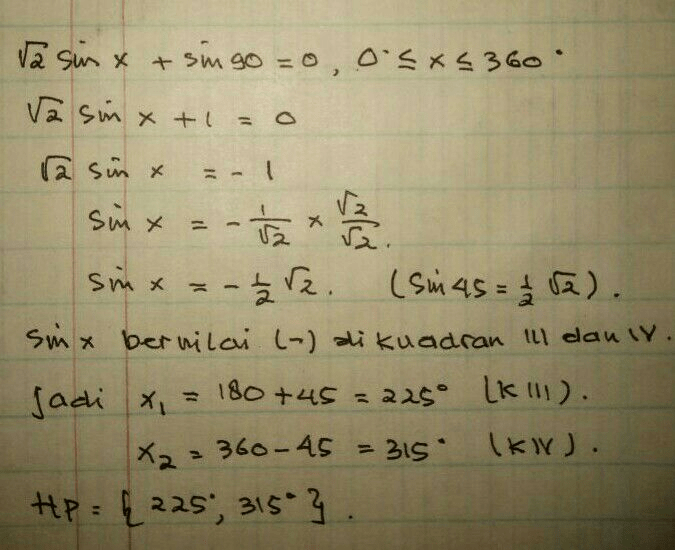 √2 sin x + sin 90 = 0, 0° ≤ x ≤ 360°
√2 sin x + 1 = 0
√2 sin x = - 1
sin x = - 1/√2 x √2/√2.
sin x = - 1/2 √2. (sin 45 = 1/2 √2).
sin x bernilai (-) di kuadran III dan IV.
Jadi x₁ = 180 + 45 = 225° (K III).
x₂ = 360 - 45 = 315° (K IV).
HP = { 225°, 315° }.